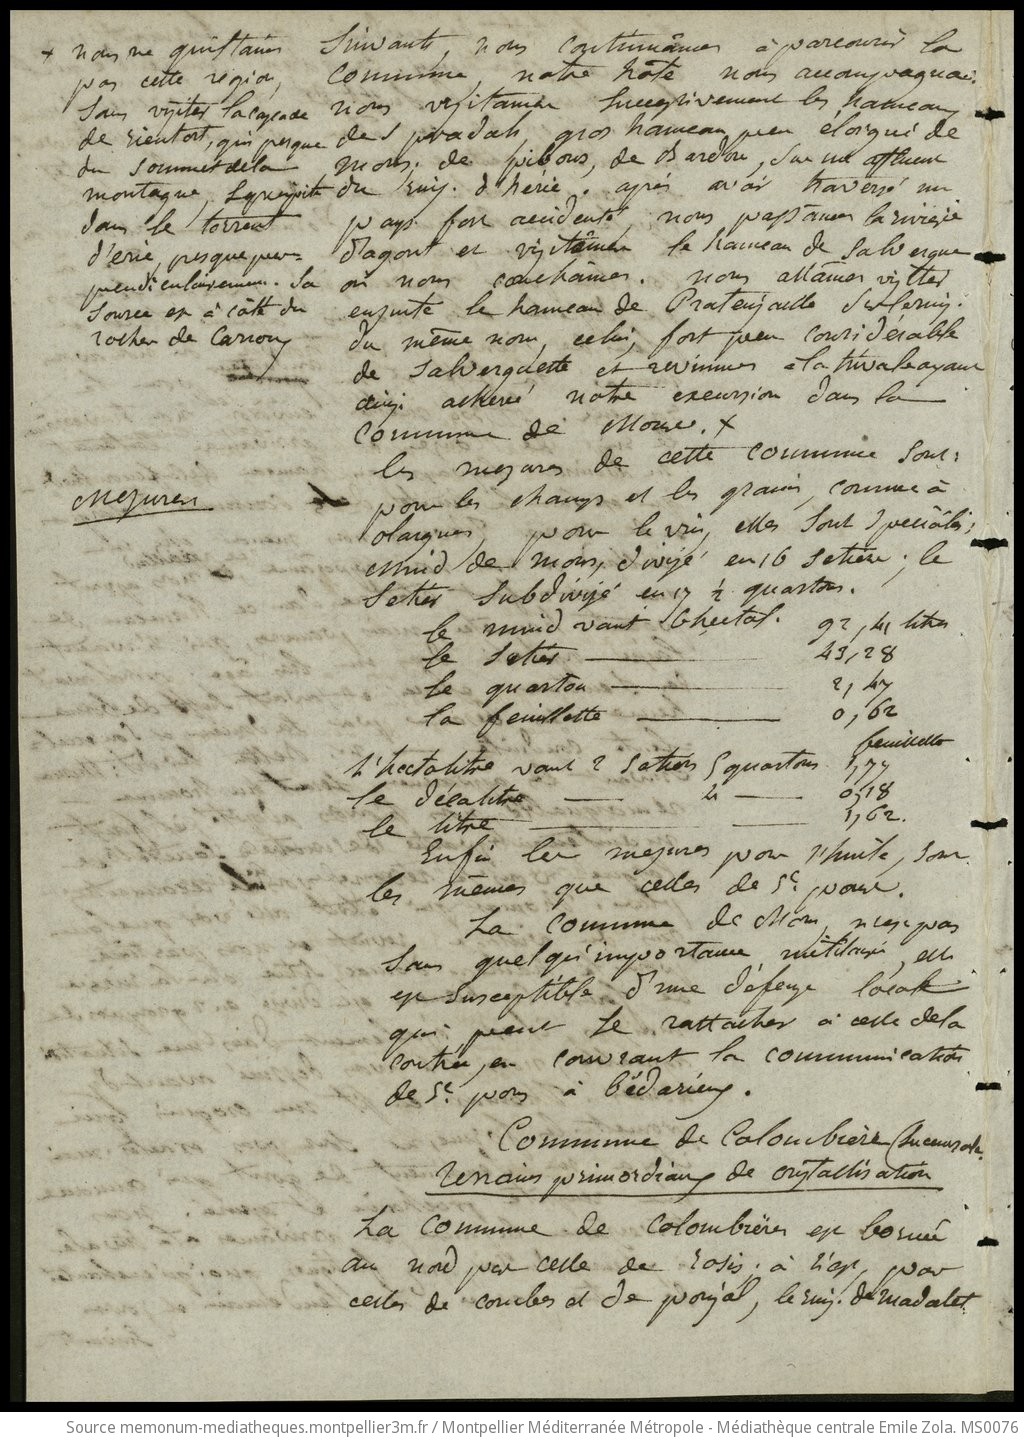 + nous ne quittames
pas cette région,
sans visiter la cascade
de rientort, qui presque
du sommet de la
montagne, se précipite
dans le torrent
d'érie, presque per-
pendiculairement. Sa
source est à côté du
rocher de Carroux
suivants, nous continuâmes à parcourir la
commune, notre hôte nous accompagnait.
nous visitames successivement les hameaux
des pradals, gros hameau peu éloigné de
mons; de pibous, de bardou, sur un affluent
du ruis. d'hérie. après avoir traversé un
pays fort accidenté, nous passames la rivière
d'agout et visitâmes le hameau de Salvergue
où nous couchâmes. nous allâmes visiter
ensuite le hameau de Pratenjalle
du même nom, celui, fort peu considérable
de Salverguette et revinmes à la trivale ayant
ainsi achevé notre excursion dans la
commune de Mons. +
Mesures
les mesures de cette commune sont:
pour les champs et les grains, comme à
olargues, pour le vin, elles sont spéciales;
muid de mons, divisé en 16 setiers; le
setier subdivisé en 17 ½ quartons.
le muid vaut 6 hectol. 92,41 litres
le setier 43,28
le quarton 2,47
la feuillette 0,62
feuillette
l'hectolitre vaut 2 setiers 5 quartons 1,77
le décalitre 4 0,18
le litre 1,62.
Enfin les mesures pour l'huile, sont
les mêmes que celles de St. pons.
La commune de Mons, n'est pas
sans quelqu'importance militaire, elle
est susceptible d'une défense locale
qui peut se rattacher à celle de la
contrée, en couvrant la communication
de St. pons à bédarieux.
Commune de Colombières (succursale.
Terrains primordiaux de cristallisation
La commune de Colombières est bornée
au nord par celle de rosis; à l'est, par
celles de combes et de poujol, le ruis. de madalet